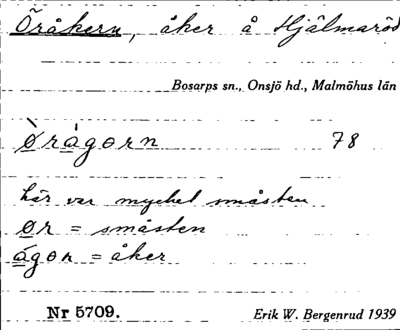 Öråkern, åker å Hjälmaröd
Bosarps sn., Onsjö hd., Malmöhus län
Ø̀rágorn 78
här var mycket småsten
ør = småsten
ágon = åker
Nr 5709. Erik W. Bergenrud 1939